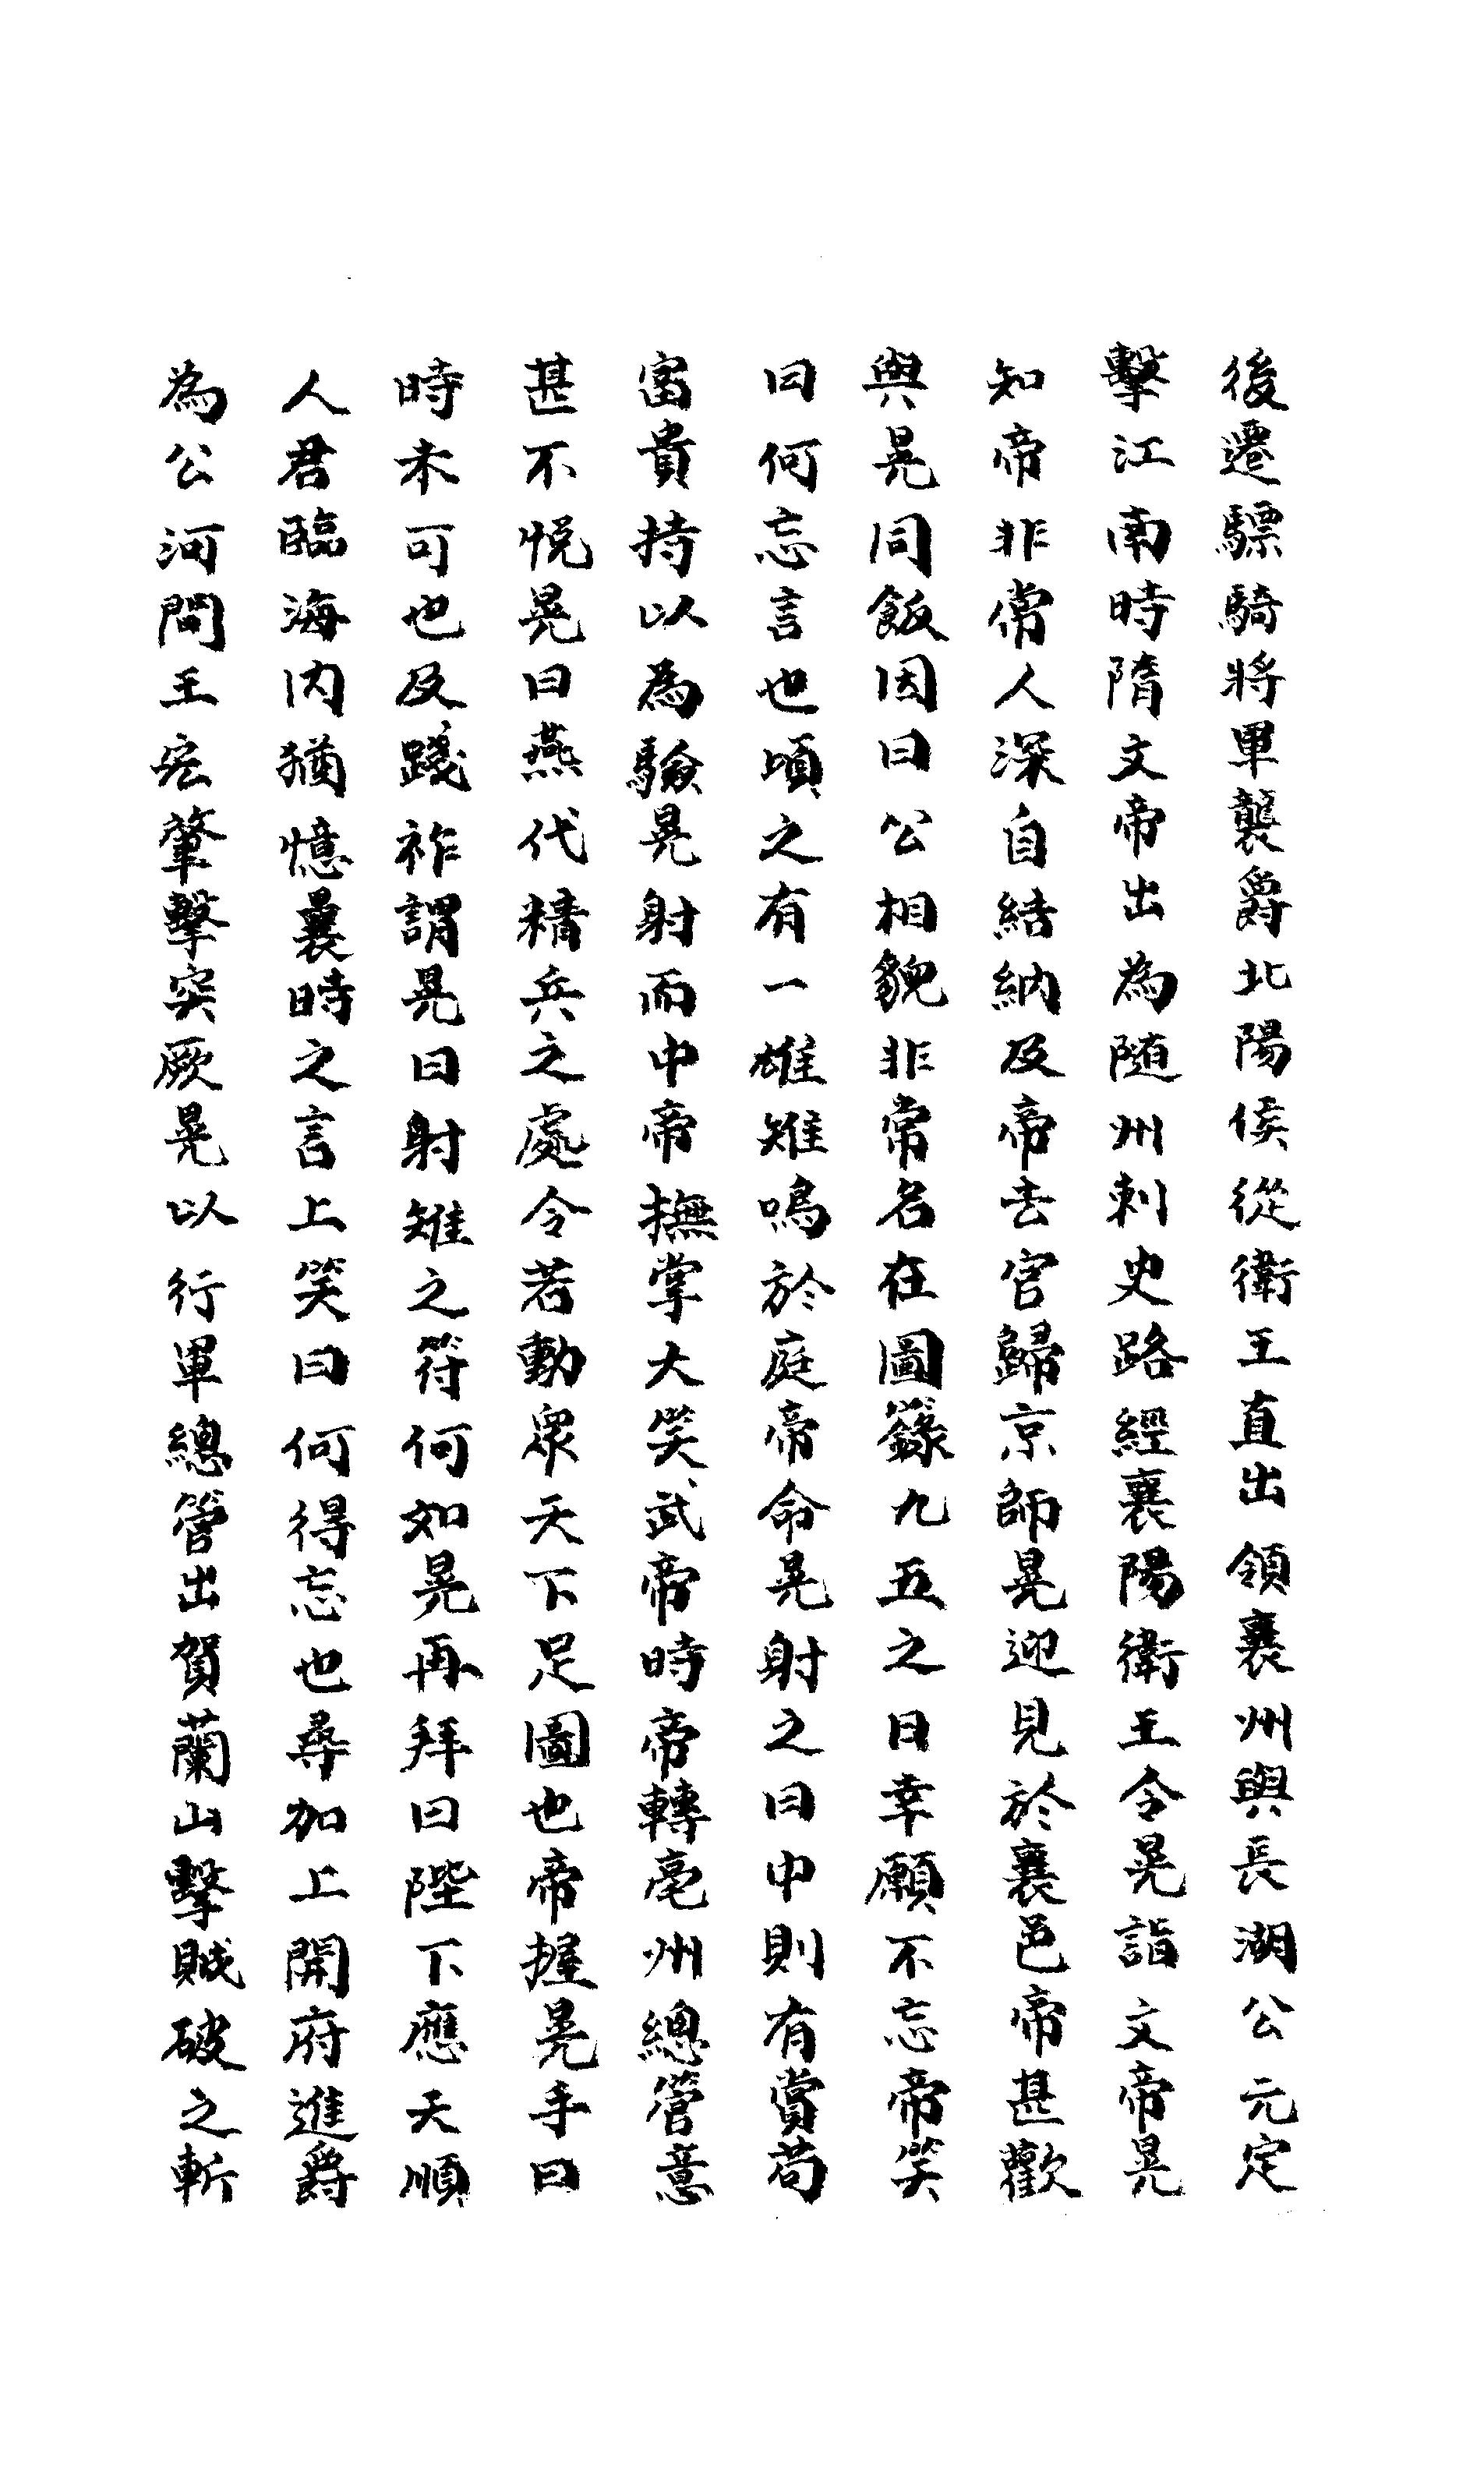 後遷驃騎將軍襲爵北陽侯從衛王直出領襄州與長湖公元定
擊江南時隋文帝出為随州刺史路經襄陽衛王令晃詣文帝晃
知帝非常人深自結納及帝去官歸京師晃迎見於襄邑帝甚歡
與晃同飯因曰公相貌非常名在圖籙九五之日幸願不忘帝笑
曰何忘言也頃之有一雄雉鳴於庭帝命晃射之曰中則有賞苟
富貴持以為驗晃射而中帝撫掌大笑武帝時帝轉亳州總管意
甚不悅晃曰燕代精兵之處令若動眾天下足圖也帝握晃手曰
時未可也及踐祚謂晃曰射雉之符何如晃再拜曰陛下應天順
人君臨海內猶憶曩時之言上笑曰何得忘也尋加上開府進爵
為公河間王宏肇擊突厥晃以行軍總管出賀蘭山擊賊破之斬